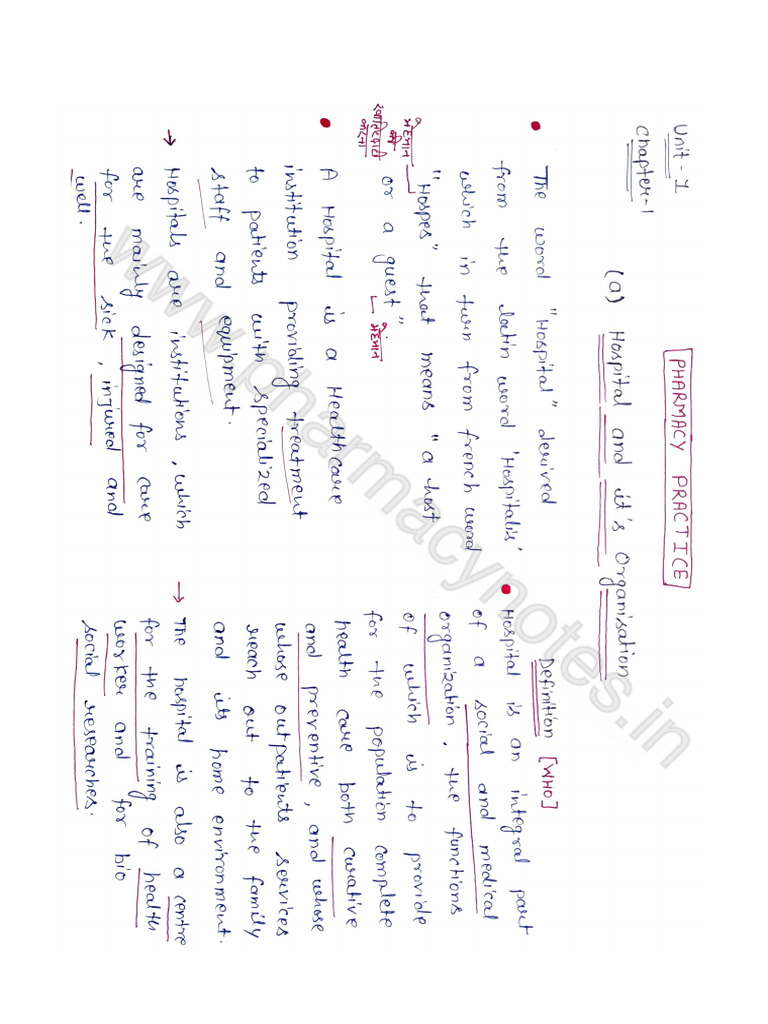 Unit - 1
Chapter-1
PHARMACY PRACTICE
(a) Hospital and it's Organisation
• The word "Hospital" derived
from the latin word 'Hospitalis'
which in turn from french word
"Hospes" that means "a host
or a guest"
मेहमान
की
खातिरदारी
करना
मेहमान
• A Hospital is a Healthcare
institution providing treatment
to patients with specialized
staff and equipment.
→ Hospitals are institutions, which
are mainly designed for care
for the sick, injured and
well.
Definition [WHO]
• Hospital is an integral part
of a social and medical
organization, the functions
of which is to provide
for the population complete
health care both curative
and preventive, and whose
whose outpatients services
reach out to the family
and its home environment.
→ The hospital is also a centre
for the training of health
worker and for bio
social researches.
www.pharmacynotes.in